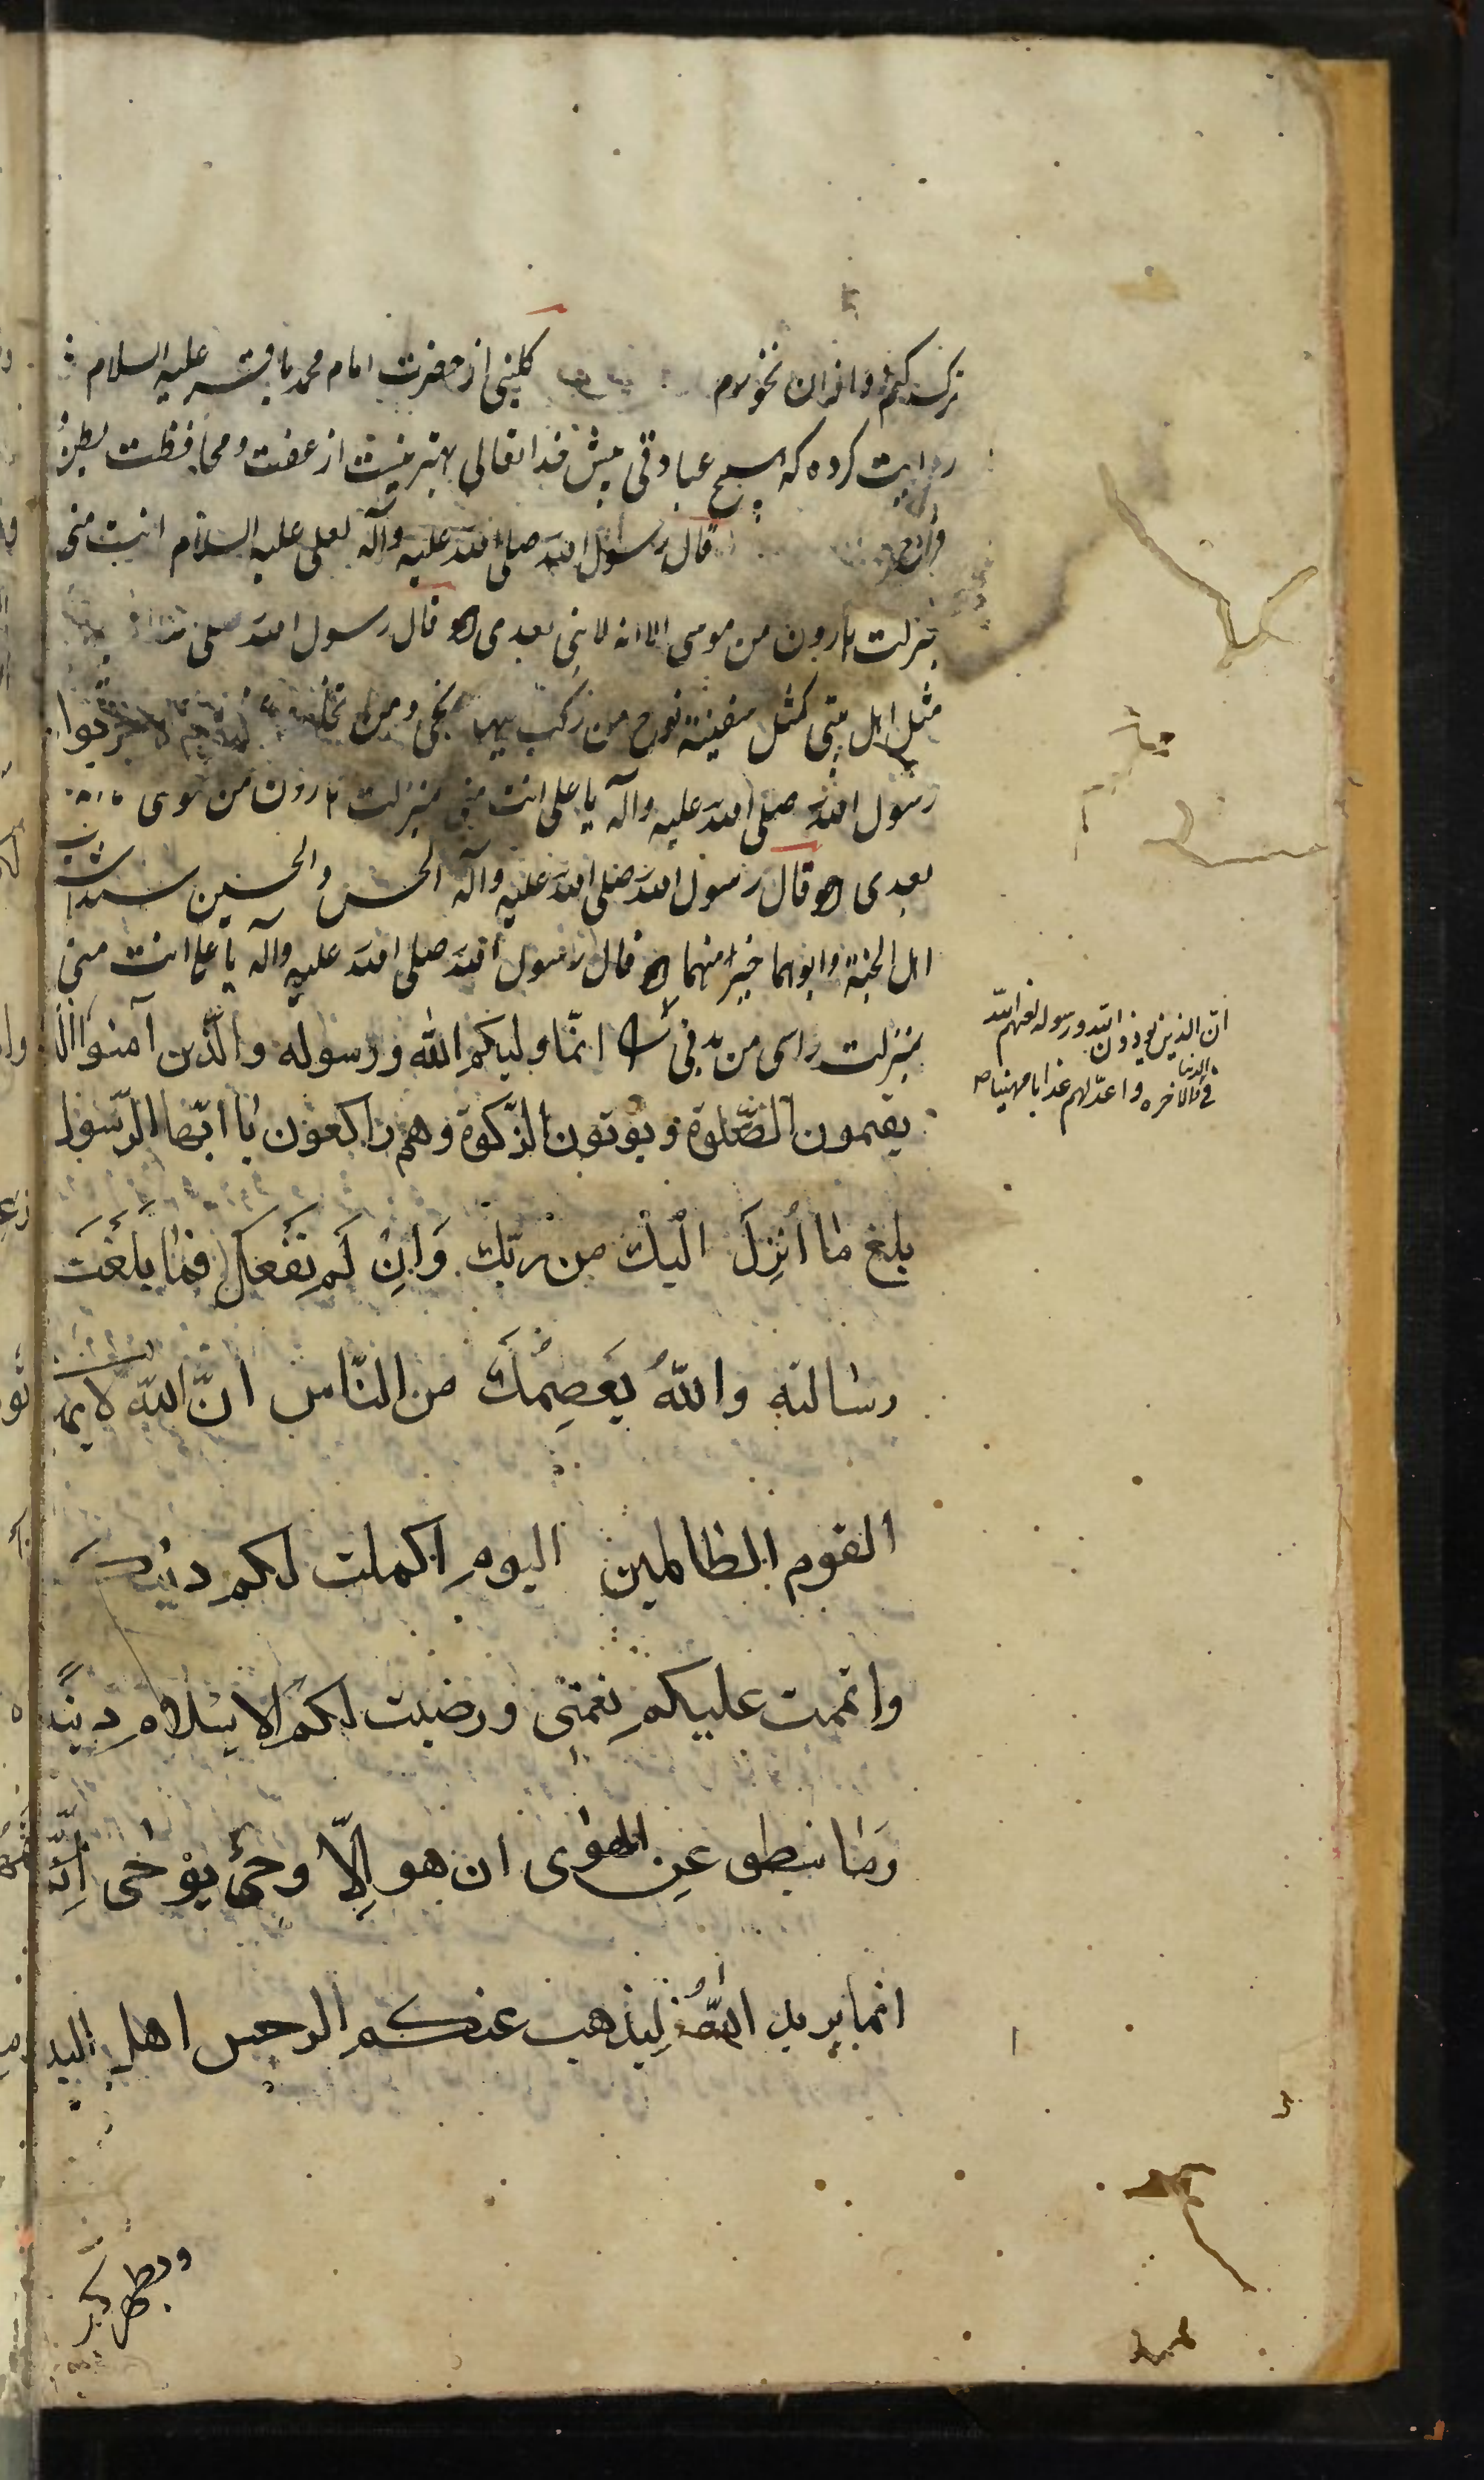 ترک کنم و افزان نخورم کلینی از حضرت امام محمد باقر علیه السلام
روایت کرده که هیچ عبادتی پیش خدایتعالی بهتر نیست از عفت و محافظت بطن و
فرج قال رسول الله صلی الله علیه وآله لعلی علیه السلام انت منی
بمنزلت هارون من موسی الا انه لا نبی بعدی قال رسول الله صلی
مثل اهل بیتی کمثل سفینة نوح من رکب فیها نجی ومن تخلف
رسول الله صلی الله علیه وآله یا علی انت منی بمنزلت هارون من موسی
بعدی قال رسول الله صلی الله علیه وآله الحسن والحسین سیدا شباب
اهل الجنة وابوهما خیر منهما قال رسول الله صلی الله علیه وآله یا علی انت منی
بمنزلت راسی من بدنی انّما ولیکم الله ورسوله والّذین آمنوا الّذ
یقیمون الصّلوة ویوتون الزّکوة وهم راکعون یا ایّها الرّسول
بلغ ما اُنزِلَ الَیْكَ من ربّك وَاِنْ لَم تَفْعَل فَما بَلَّغْتَ
رسالته واللهُ یَعصِمُكَ من النّاس انّ الله لا یهد
القوم الظالمین الیوم اکملت لکم دینک
واتممت علیکم نعمتی ورضیت لکم الاسلام دیناً
وَما ینطق عَنِ الهوٰی ان هو اِلّا وحیٌ یوحٰی اِنّه
انما یرید اللهُ لِیذهب عنکم الرجس اهل البیـ
ویطهرکم
انّ الذین یوذون الله ورسوله لعنهم الله
فی الدنیا والاخره واعدّ لهم عذابا مهینا